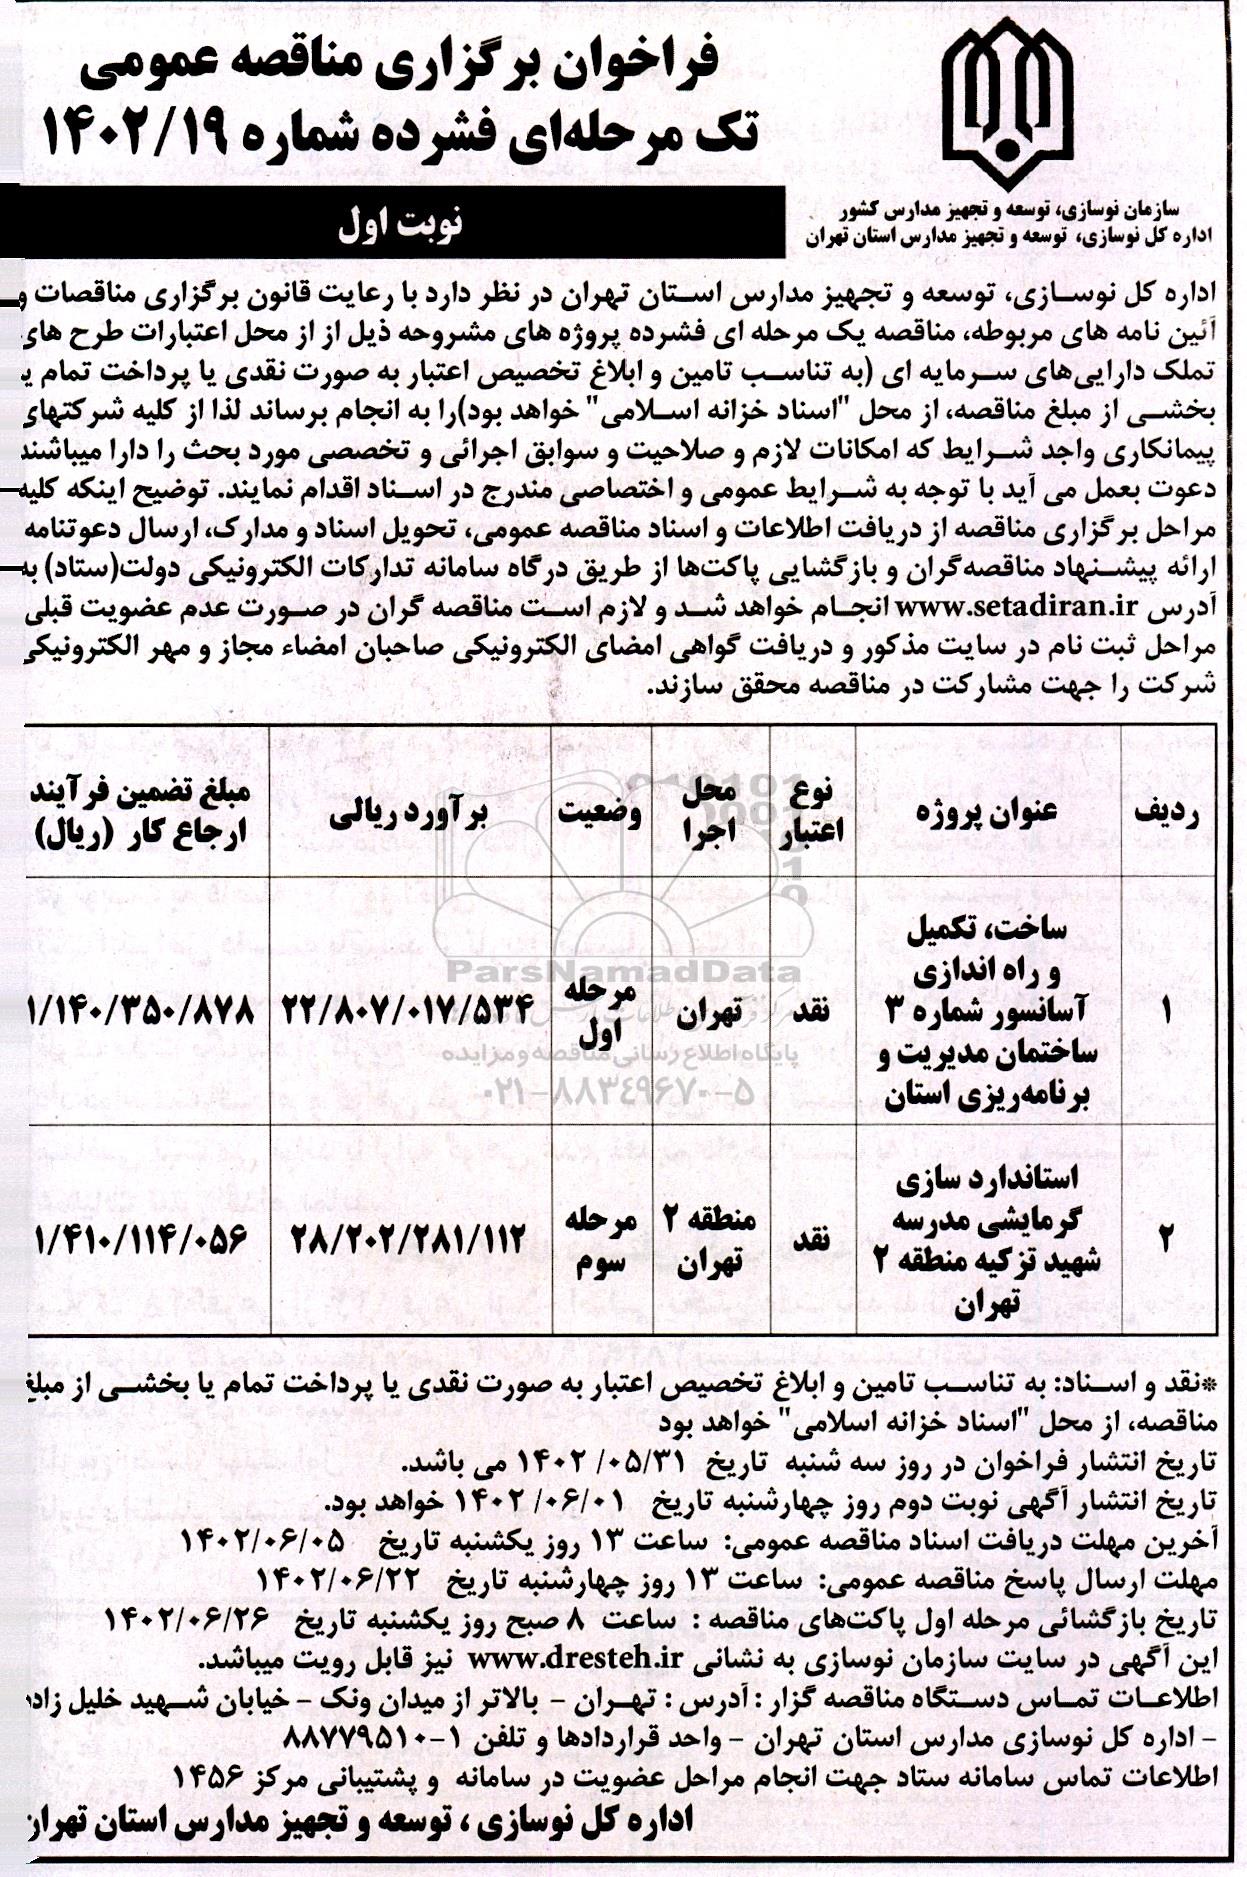 فراخوان برگزاری مناقصه عمومی
تک مرحله‌ای فشرده شماره ۱۴۰۲/۱۹
سازمان نوسازی، توسعه و تجهیز مدارس کشور
اداره کل نوسازی، توسعه و تجهیز مدارس استان تهران
نوبت اول
اداره کل نوسـازی، توسعه و تجهیز مدارس اسـتان تهران در نظر دارد با رعایت قانون برگزاری مناقصات و
آئین نامه های مربوطه، مناقصه یک مرحله ای فشرده پروژه های مشروحه ذیل از از محل اعتبارات طرح های
تملک دارایی‌های سـرمایه ای (به تناسـب تامین و ابلاغ تخصیص اعتبار به صورت نقدی یا پرداخت تمام
بخشـی از مبلغ مناقصه، از محل "اسناد خزانه اسـلامی" خواهد بود)را به انجام برساند لذا از کلیه شرکتهای
پیمانکاری واجد شـرایط که امکانات لازم و صلاحیت و سوابق اجرائی و تخصصی مورد بحث را دارا میباشند
دعوت بعمل می آید با توجه به شـرایط عمومی و اختصاصی مندرج در اسـناد اقدام نمایند. توضیح اینکه کلیه
مراحل برگزاری مناقصه از دریافت اطلاعات و اسناد مناقصه عمومی، تحویل اسناد و مدارک، ارسال دعوتنامه
ارائه پیشـنهاد مناقصه‌گران و بازگشایی پاکت‌ها از طریق درگاه سامانه تدارکات الکترونیکی دولت(ستاد) به
آدرس www.setadiran.ir انجـام خواهد شـد و لازم اسـت مناقصه گران در صـورت عدم عضویت قبلی
مراحل ثبت نام در سایت مذکور و دریافت گواهی امضای الکترونیکی صاحبان امضاء مجاز و مهر الکترونیکی
شرکت را جهت مشارکت در مناقصه محقق سازند.
ردیف عنوان پروژه نوع اعتبار محل اجرا وضعیت برآورد ریالی مبلغ تضمین فرآیند ارجاع کار (ریال)
۱ ساخت، تکمیل و راه اندازی آسانسور شماره ۳ ساختمان مدیریت و برنامه‌ریزی استان نقد تهران مرحله اول ۲۲/۸۰۷/۰۱۷/۵۳۴ ۱/۱۴۰/۳۵۰/۸۷۸
۲ استاندارد سازی گرمایشی مدرسه شهید تزکیه منطقه ۲ تهران نقد منطقه ۲ تهران مرحله سوم ۲۸/۲۰۲/۲۸۱/۱۱۲ ۱/۴۱۰/۱۱۴/۰۵۶
ParsNamadData
پایگاه اطلاع رسانی مناقصه و مزایده
۰۲۱-۸۸۳۴۹۶۷۰-۵
*نقد و اسـناد: به تناسـب تامین و ابلاغ تخصیص اعتبار به صورت نقدی یا پرداخت تمام یا بخشـی از مبلغ
مناقصه، از محل "اسناد خزانه اسلامی" خواهد بود
تاریخ انتشار فراخوان در روز سه شنبه تاریخ ۱۴۰۲/۰۵/۳۱ می باشد.
تاریخ انتشار آگهی نوبت دوم روز چهارشنبه تاریخ ۱۴۰۲/۰۶/۰۱ خواهد بود.
آخرین مهلت دریافت اسناد مناقصه عمومی: ساعت ۱۳ روز یکشنبه تاریخ ۱۴۰۲/۰۶/۰۵
مهلت ارسال پاسخ مناقصه عمومی: ساعت ۱۳ روز چهارشنبه تاریخ ۱۴۰۲/۰۶/۲۲
تاریخ بازگشائی مرحله اول پاکت‌های مناقصه : ساعت ۸ صبح روز یکشنبه تاریخ ۱۴۰۲/۰۶/۲۶
این آگهی در سایت سازمان نوسازی به نشانی www.dresteh.ir نیز قابل رویت میباشد.
اطلاعـات تمـاس دسـتگاه مناقصه گزار : آدرس : تهـران - بالاتر از میدان ونک - خیابان شـهید خلیل زاده
- اداره کل نوسازی مدارس استان تهران - واحد قراردادها و تلفن ۱-۸۸۷۷۹۵۱۰
اطلاعات تماس سامانه ستاد جهت انجام مراحل عضویت در سامانه و پشتیبانی مرکز ۱۴۵۶
اداره کل نوسازی ، توسعه و تجهیز مدارس استان تهران